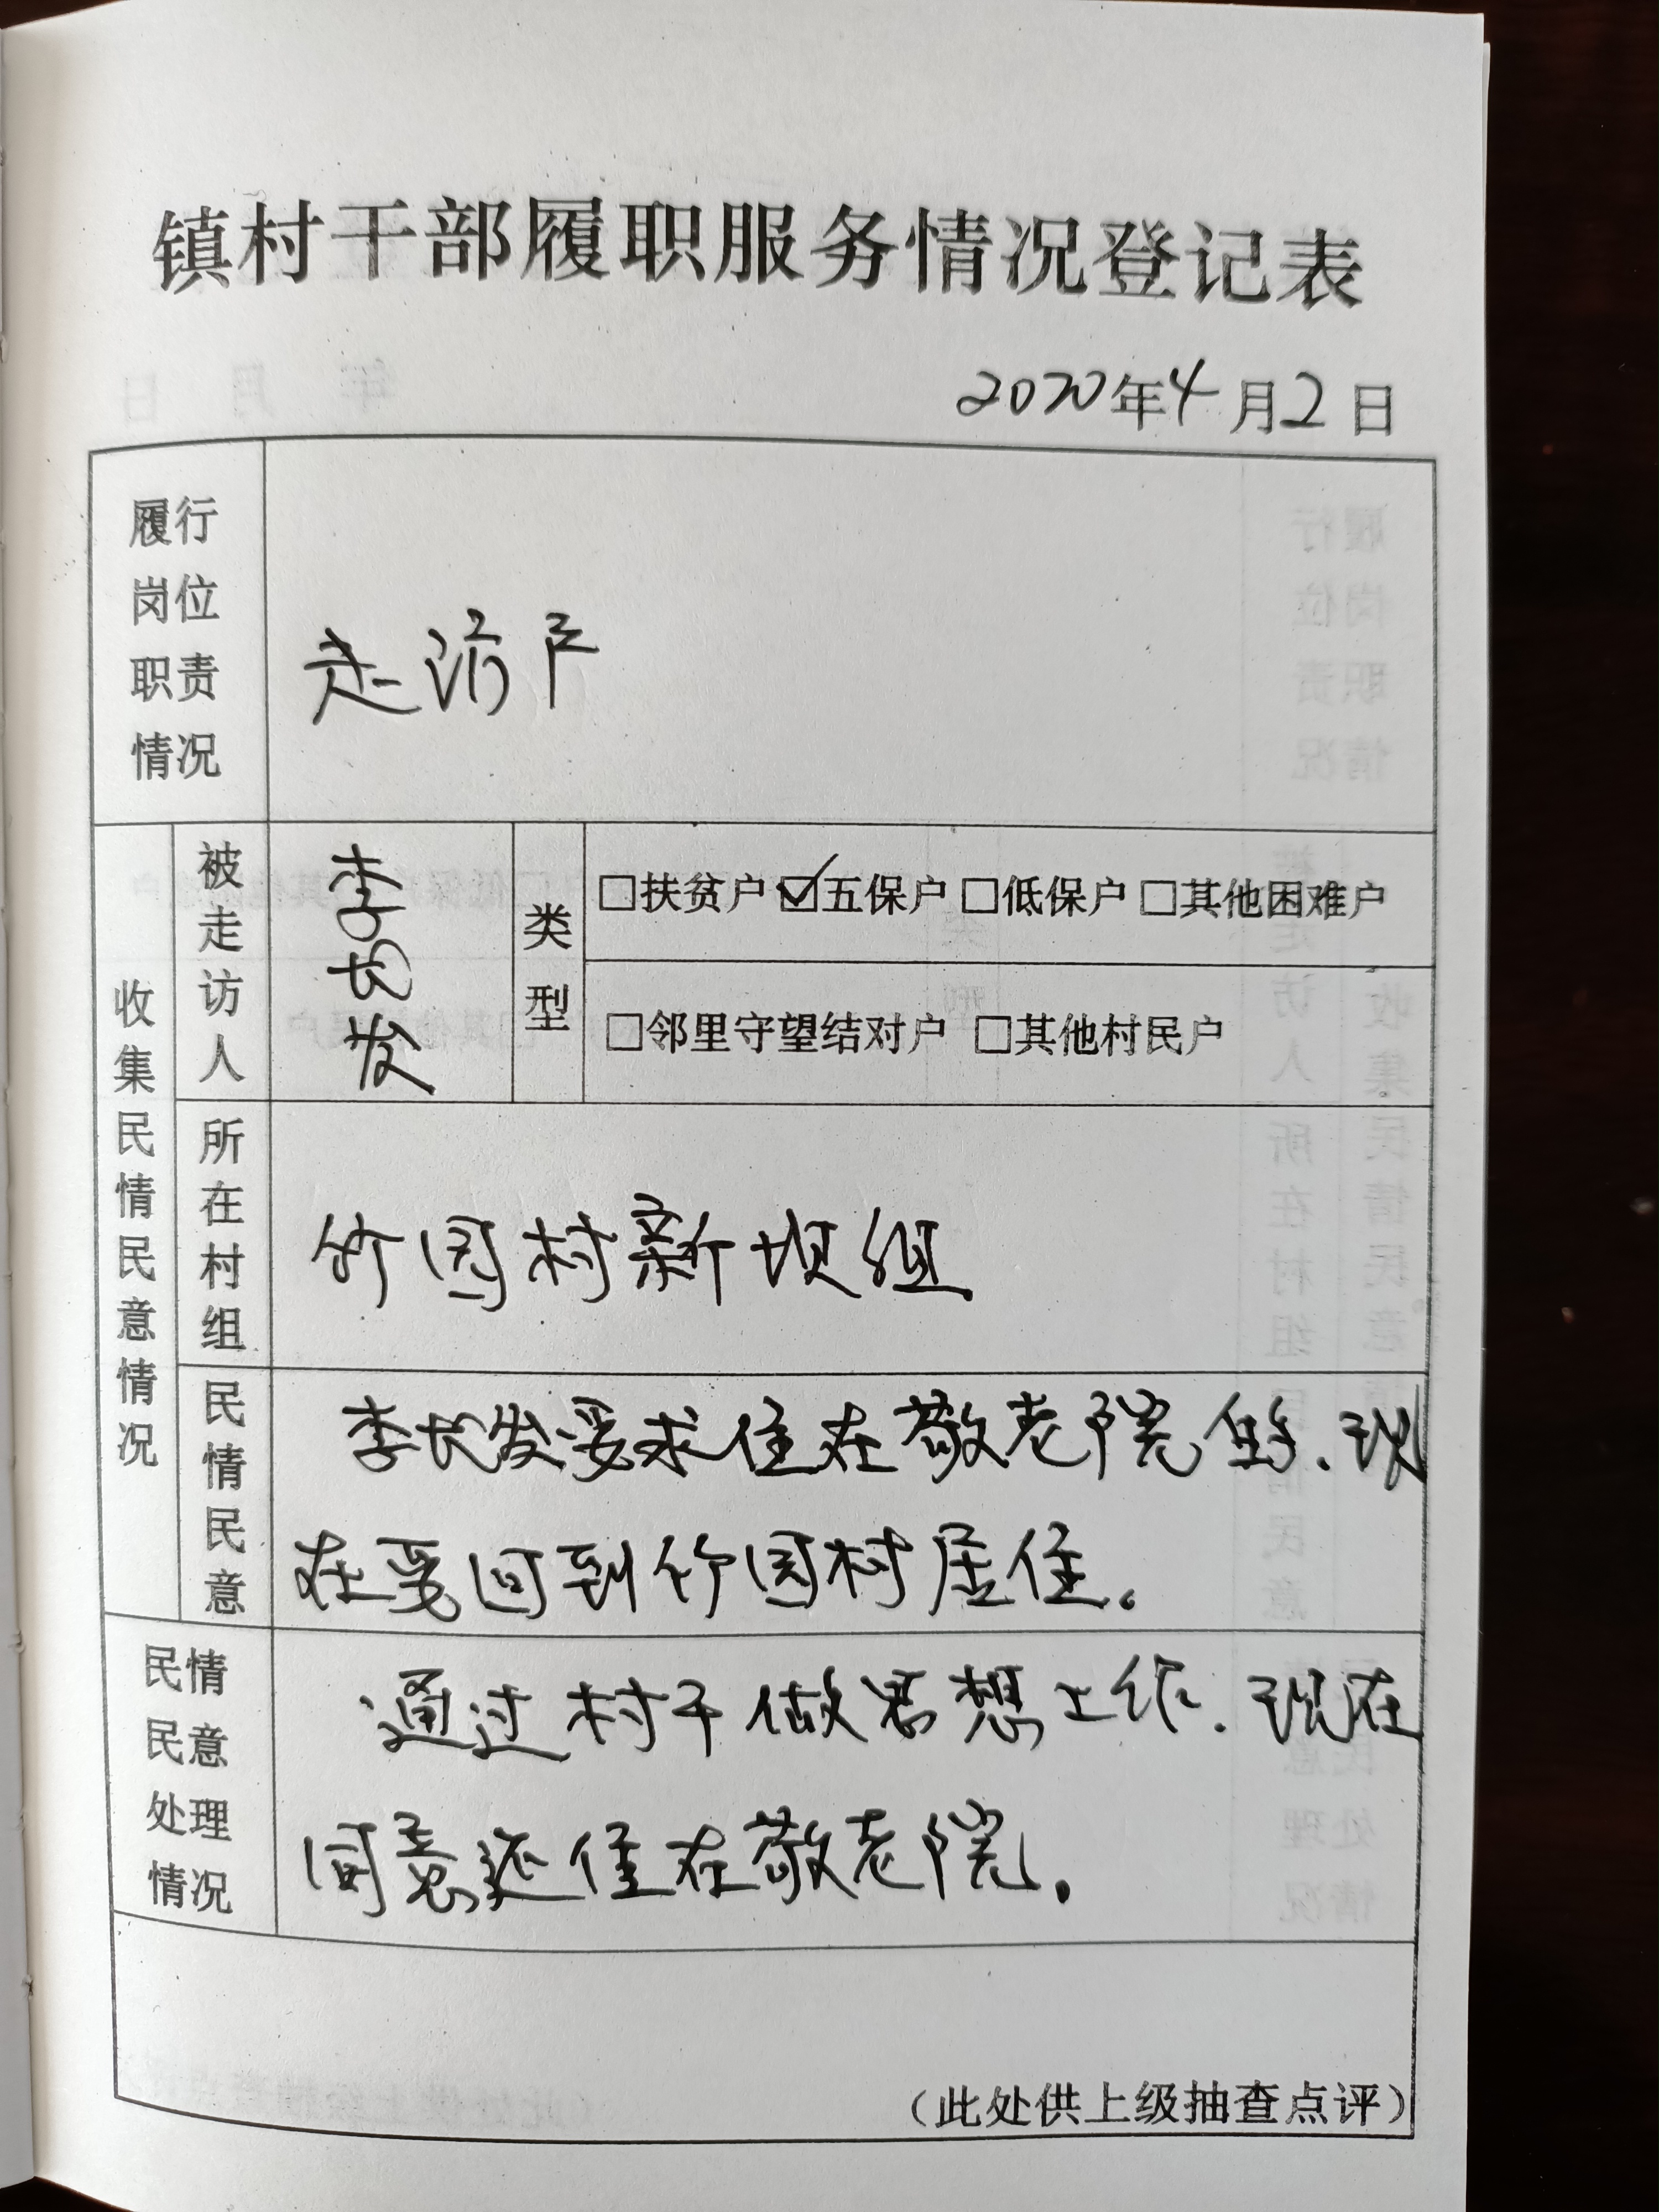 镇村干部履职服务情况登记表
2020年4月2日
履行
岗位
职责
情况
走访户
收集民情民意情况
被走访人
李长发
类型
□扶贫户 ☑五保户 □低保户 □其他困难户
□邻里守望结对户 □其他村民户
所在村组
竹园村新坝组
民情民意
李长发要求住在敬老院的、现
在要回到竹园村居住。
民情
民意
处理
情况
通过村干做思想工作、现在
同意还住在敬老院。
（此处供上级抽查点评）